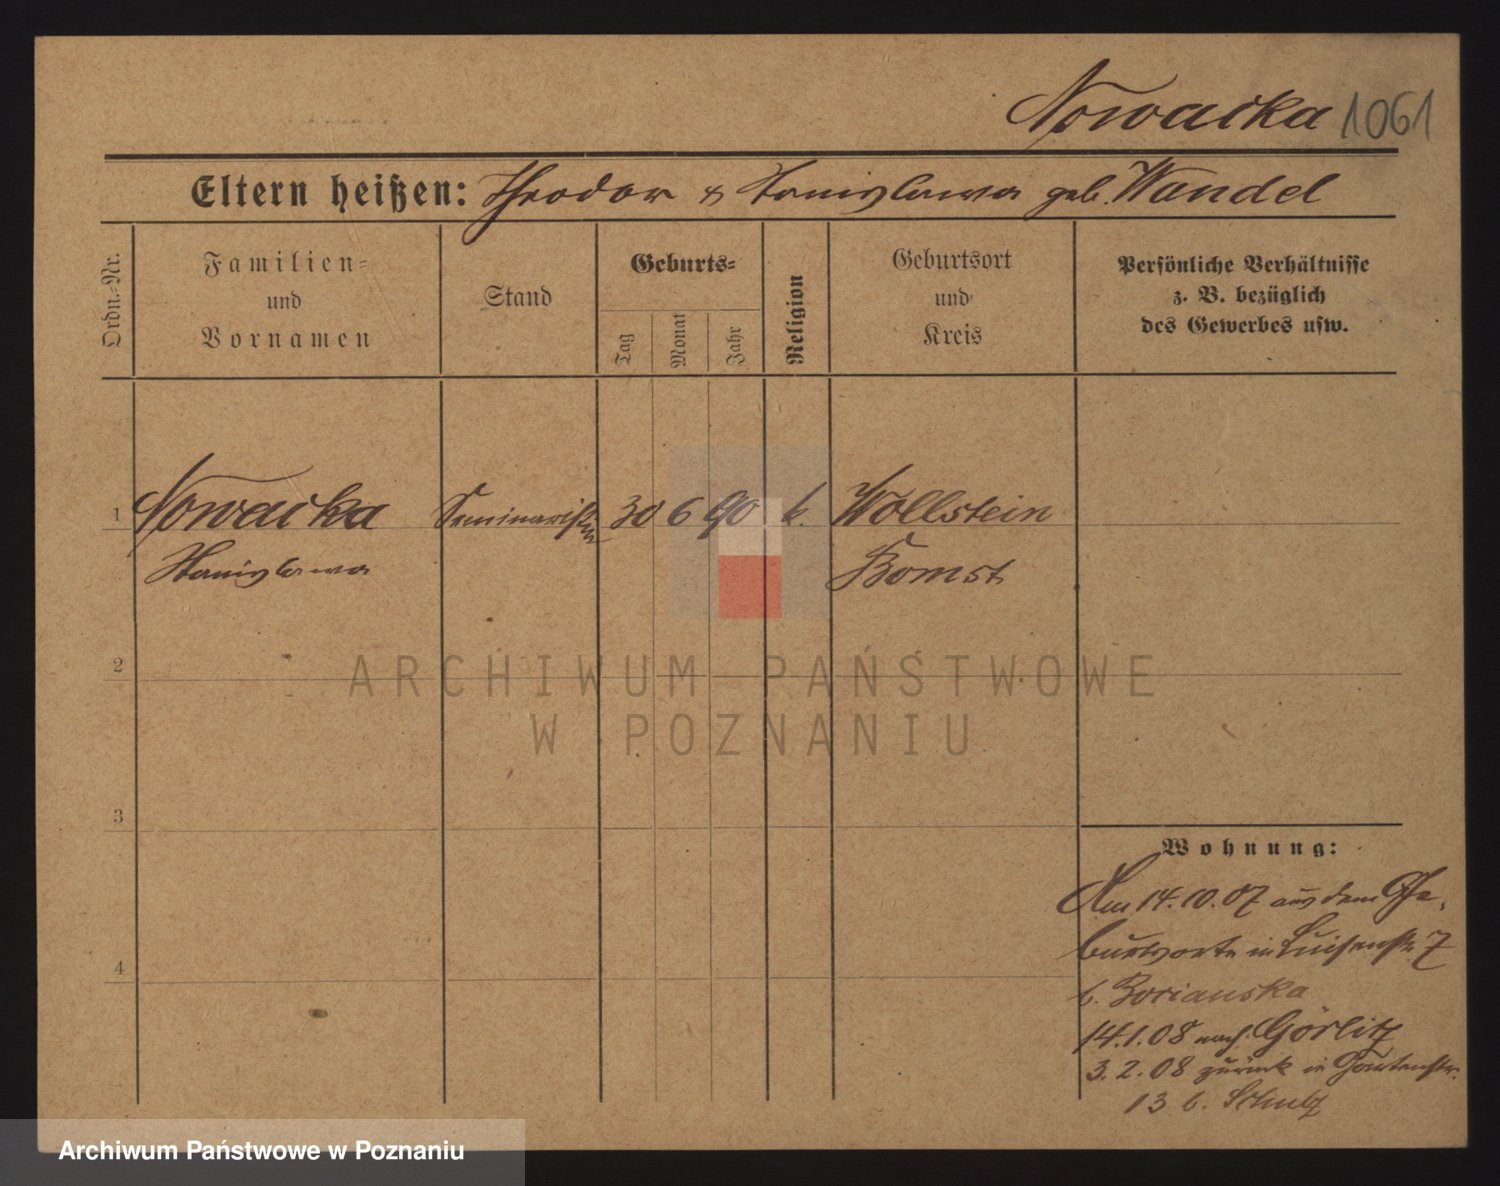 Nowacka 1061
Eltern heißen: Theodor & Stanislawa geb. Wandel
Ordn.-Nr.
Familien-
und
Vornamen
Stand
Geburts-
Tag
Monat
Jahr
Religion
Geburtsort
und
Kreis
Persönliche Verhältnisse
z. B. bezüglich
des Gewerbes usw.
1 Nowacka Seminaristin 30 6 90 k. Wollstein
Stanislawa Bomst
2
ARCHIWUM PAŃSTWOWE
W POZNANIU
3
Wohnung:
Am 14.10.07 aus dem Ge-
burtsorte in Luisenstr. 7
b. Borianska
4
14.1.08 nach Görlitz
3.2.08 zurück in Gartenstr.
13 b. Schulz
Archiwum Państwowe w Poznaniu